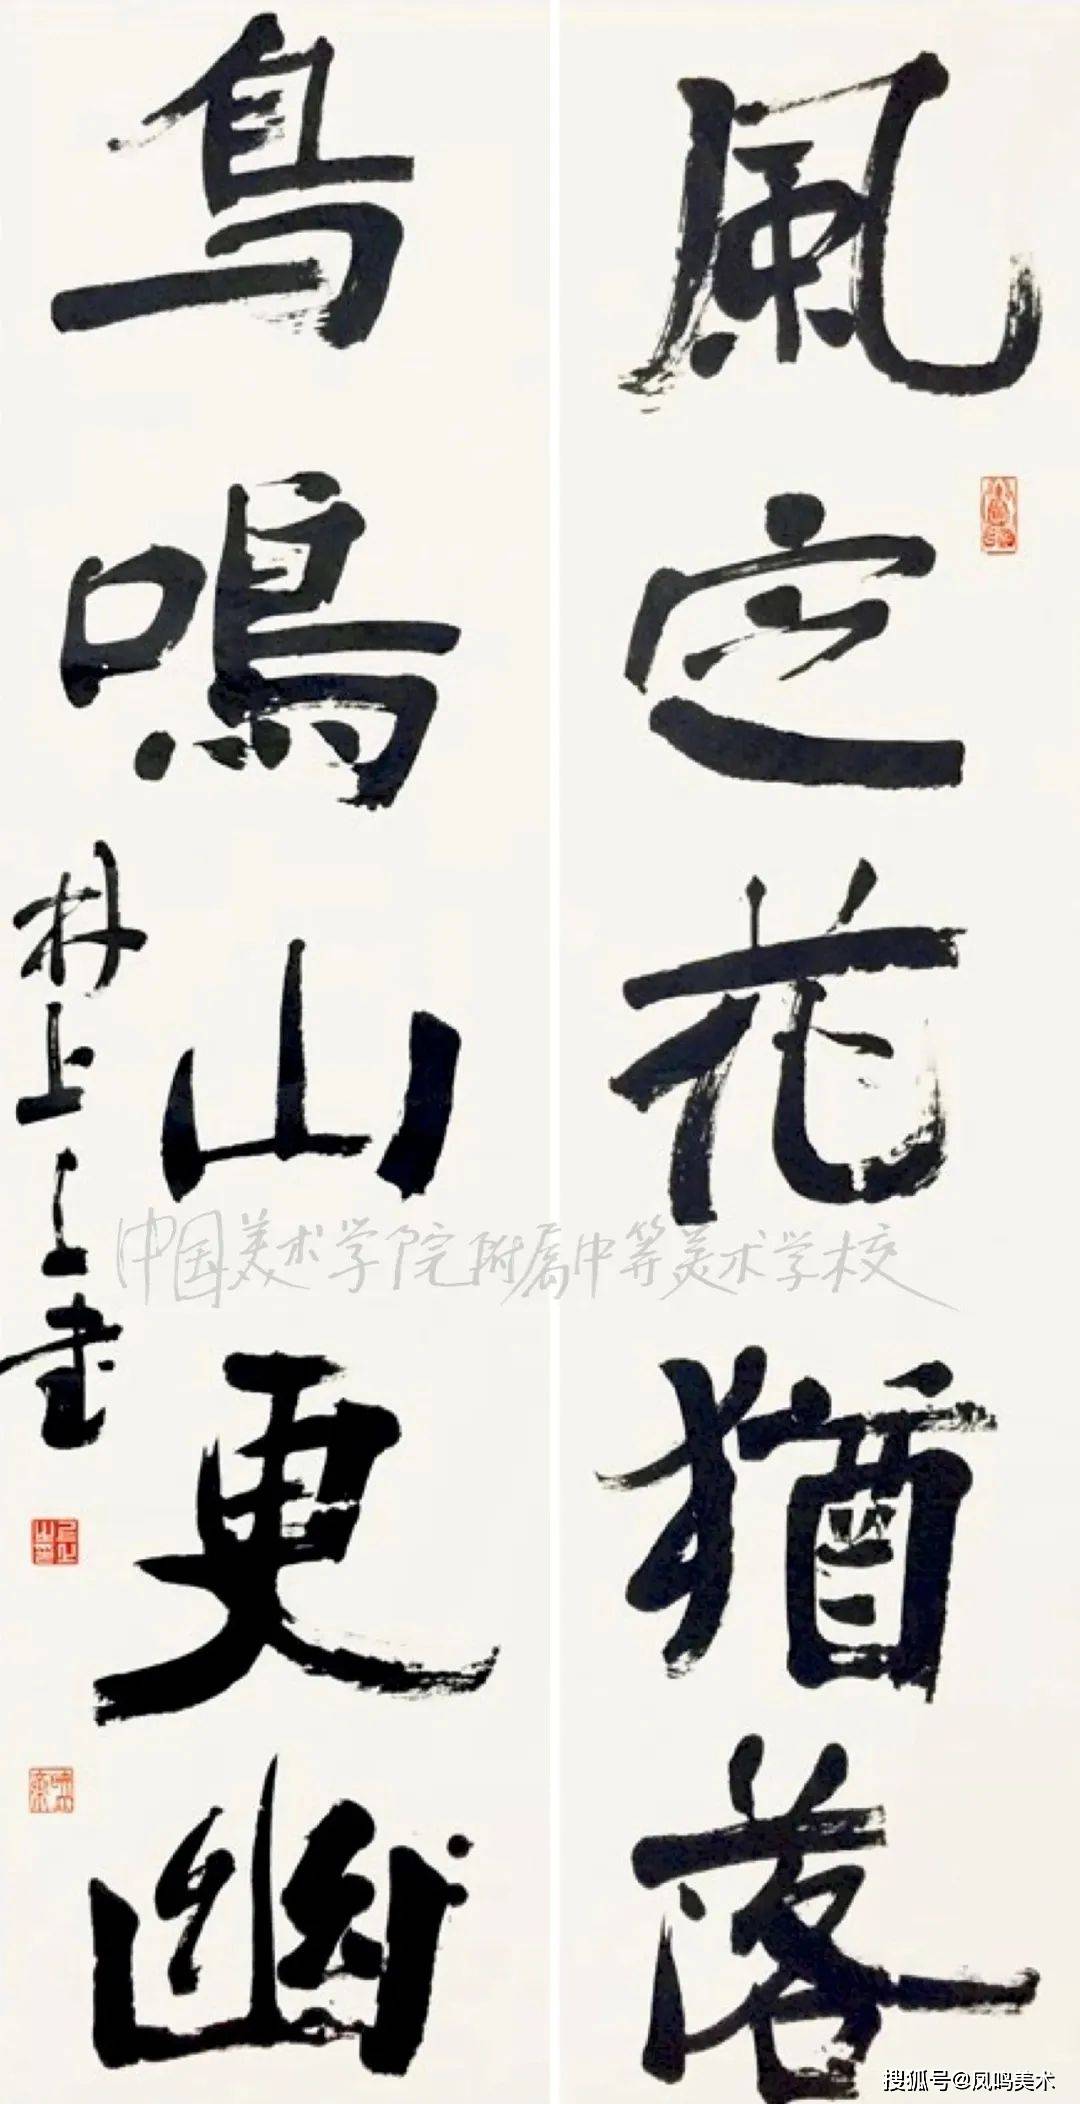 風定花猶落
鳥鳴山更幽
林上之書
中国美术学院附属中等美术学校
搜狐号@凤鸣美术